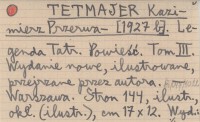 TETMAJER Kazi-
mierz Przerwa- [1927 ?]. Le-
genda Tatr. Powieść. Tom III.
Wydanie nowe, ilustrowane,
przejrzane przez autora. –
Warszawa. Stron 144, ilustr.,
okł. (ilustr.), cm 17 x 12. Wyd.: